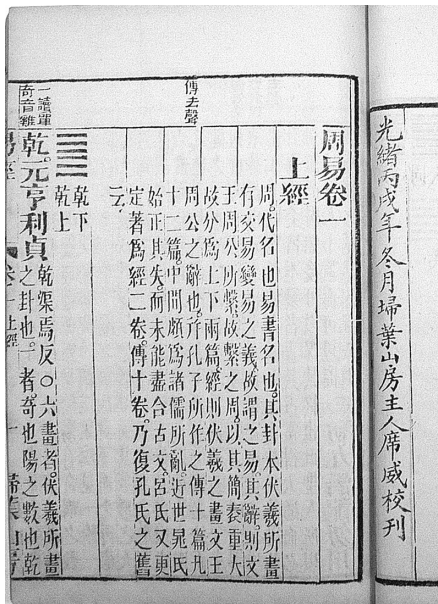 光緒丙戌年冬月埽葉山房主人席威校刊
周易卷一
上經
傳去聲
周。代名也。易書名也。其卦本伏羲所畫
有交易變易之義。故謂之易。其辭則文
王周公所繫。故繫之周。以其簡袠重大
故分爲上下兩篇。經則伏羲之畫。文王
周公之辭也。并孔子所作之傳十篇。凡
十二篇。中間頗爲諸儒所亂。近世晁氏
始正其失。而未能盡合古文。呂氏又更
定著爲經二卷。傳十卷。乃復孔氏之舊
云。
乾下
乾上
一讀單
奇音雞
乾。元亨利貞
乾渠焉反○六畫者伏羲所畫
之卦也。一者奇也陽之數也乾
易經 卷一 上經 一 埽葉山房